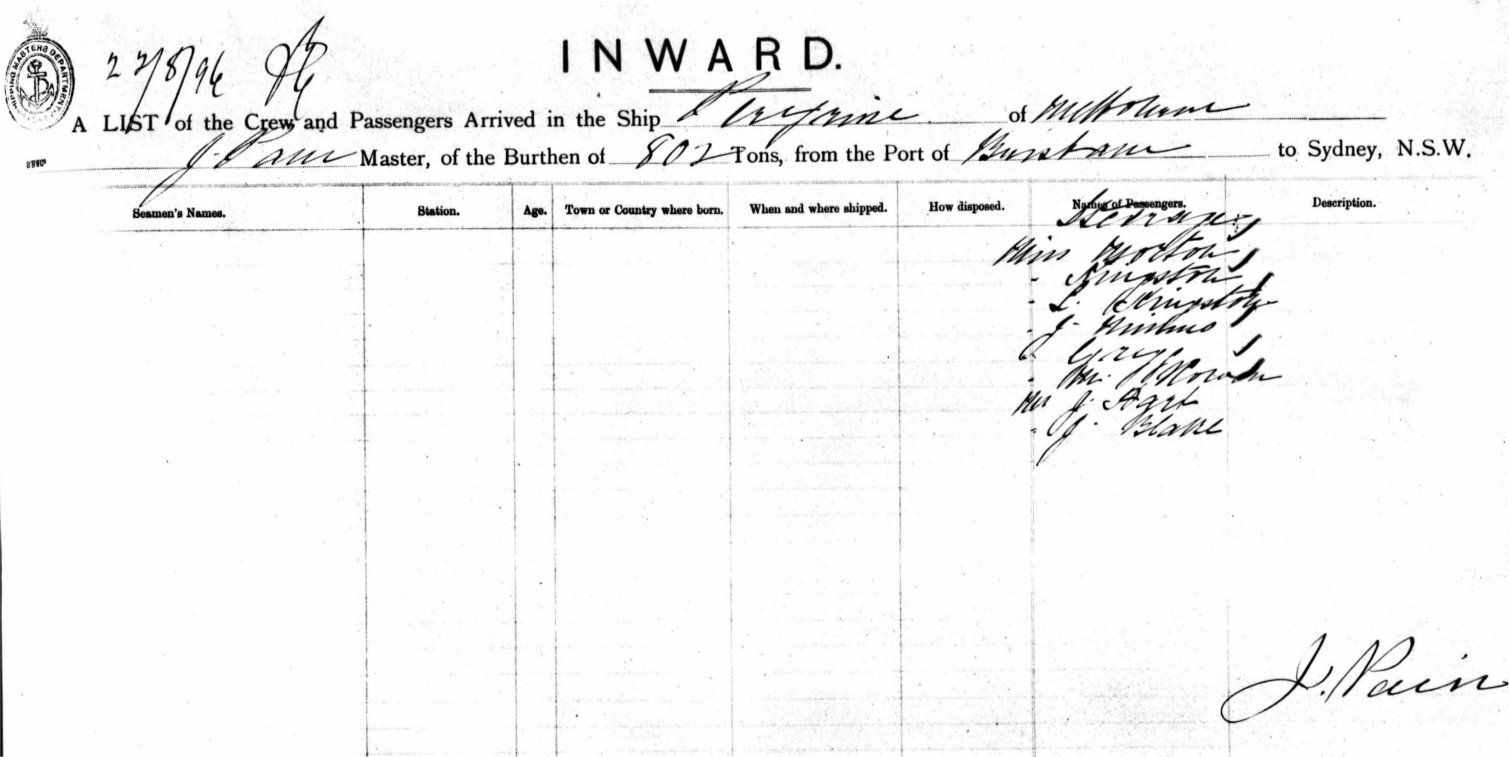 SHIPPING MASTERS DEPARTMENT
22/8/96
INWARD.
A LIST of the Crew and Passengers Arrived in the Ship Peregrine of Melbourne
J. Pain Master, of the Burthen of 802 Tons, from the Port of Brisbane to Sydney, N.S.W.
Seamen's Names. Station. Age. Town or Country where born. When and where shipped. How disposed. Names of Passengers. Description.
Steerage
Miss Morton
" Kingston
" L. Kingston
" J.
" Grey
" Wm.
Mr J.
" J. Blake
J. Pain